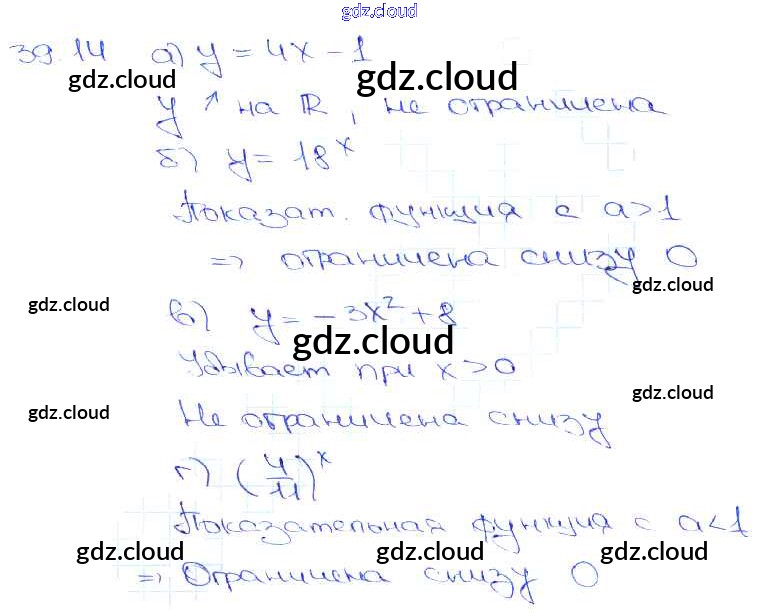 gdz.cloud
39.14 а) y = 4x - 1
gdz.cloud gdz.cloud
y ↑ на ℝ, не ограничена
б) y = 18^x
Показат. функция с a>1
=> ограничена снизу 0
gdz.cloud
gdz.cloud
в) y = -3x² + 8
gdz.cloud
Убывает при x>0
gdz.cloud
gdz.cloud
Не ограничена снизу
г) (4/11)^x
Показательная функция с a<1
gdz.cloud gdz.cloud gdz.cloud
=> Ограничена снизу 0